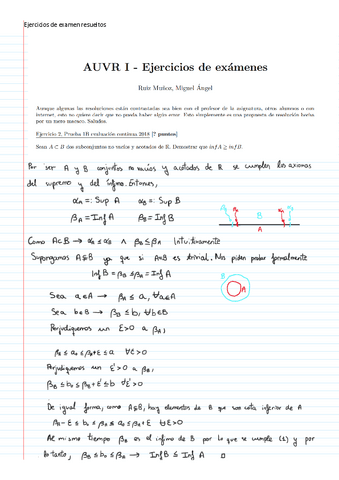 Ejercicios de examen resueltos
AUVR I - Ejercicios de exámenes
Ruiz Muñoz, Miguel Ángel
Aunque algunas las resoluciones están contrastadas sea bien con el profesor de la asignatura, otros alumnos o con
internet, esto no quiere decir que no pueda haber algún error. Esto simplemente es una propuesta de resolución hecha
por un mero manaco. Saludos.
Ejercicio 2. Prueba 1B evaluación continua 2018 [7 puntos]
Sean A ⊂ B dos subconjuntos no vacíos y acotados de R. Demostrar que infA ≥ infB.
Por ser A y B conjuntos no vacíos y acotados de R se cumplen los axiomas
del supremo y del ínfimo. Entonces,
α_A =: Sup A α_B =: Sup B
β_A = Inf A β_B = Inf B
B
A
Como A⊂B → α_A ≤ α_B ∧ β_B ≤ β_A Intuitivamente
Supongamos A⊊B ya que si A=B es trivial. Nos piden probar formalmente
Inf B = β_B ≤ β_A = Inf A
B
A
Sea a∈A → β_A ≤ a, ∀a∈A
Sea b∈B → β_B ≤ b, ∀b∈B
Perjudiquemos un ε>0 a β_A;
β_A ≤ a₀ ≤ β_A+ε ≤ a ∀ε>0
Perjudiquemos un ε'>0 a β_B;
β_B ≤ b₀ ≤ β_B+ε' ≤ b ∀ε'>0
De igual forma, como A⊊B, hay elementos de B que son cota inferior de A
β_A-ε ≤ b₀ ≤ β_A ≤ a₀ ≤ β_A+ε ∀ε>0
Al mismo tiempo β_B es el ínfimo de B por lo que se cumple (1) y por
lo tanto, β_B ≤ b₀ ≤ β_A → Inf B ≤ Inf A □